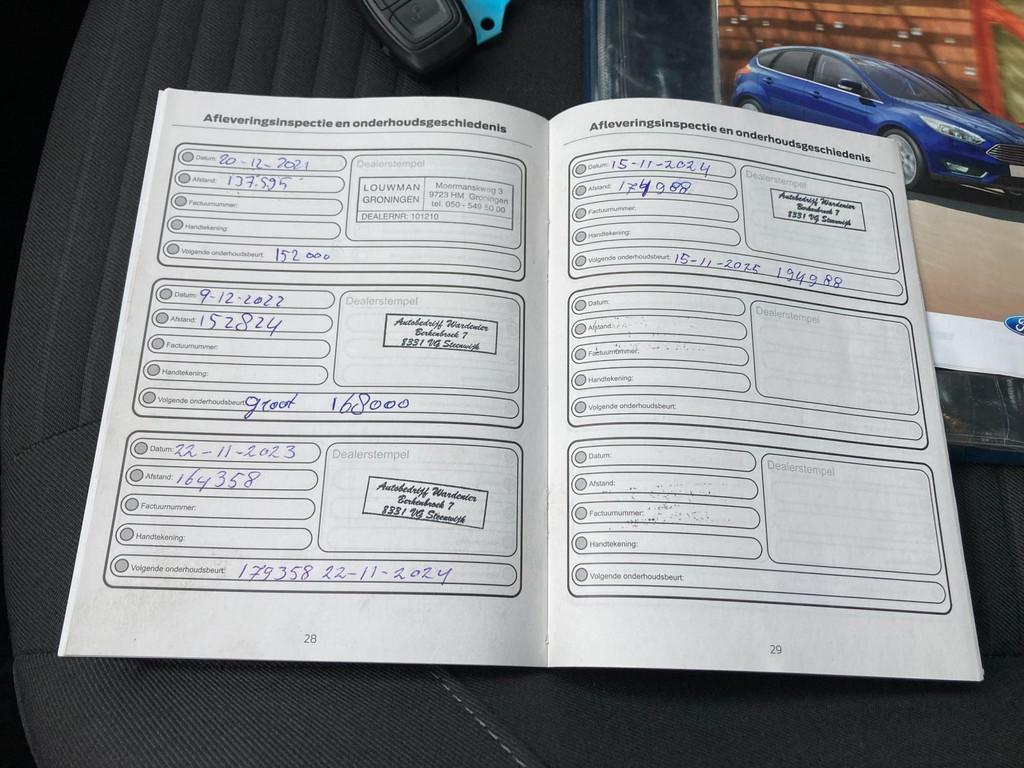 Afleveringsinspectie en onderhoudsgeschiedenis
Datum: 20-12-2021
Afstand: 137.595
Factuurnummer:
Handtekening:
Volgende onderhoudsbeurt: 152000
Dealerstempel
LOUWMAN GRONINGEN
Moermanskweg 3
9723 HM Groningen
tel. 050 - 549 50 00
DEALERNR: 101210
Datum: 9-12-2022
Afstand: 152824
Factuurnummer:
Handtekening:
Volgende onderhoudsbeurt: groot 168000
Dealerstempel
Autobedrijf Wardenier
Berkenbroek 7
8331 VG Steenwijk
Datum: 22-11-2023
Afstand: 164358
Factuurnummer:
Handtekening:
Volgende onderhoudsbeurt: 179358 22-11-2024
Dealerstempel
Autobedrijf Wardenier
Berkenbroek 7
8331 VG Steenwijk
28
Afleveringsinspectie en onderhoudsgeschiedenis
Datum: 15-11-2024
Afstand: 174988
Factuurnummer:
Handtekening:
Volgende onderhoudsbeurt: 15-11-2025 194988
Dealerstempel
Autobedrijf Wardenier
Berkenbroek 7
8331 VG Steenwijk
Datum:
Afstand:
Factuurnummer:
Handtekening:
Volgende onderhoudsbeurt:
Dealerstempel
Datum:
Afstand:
Factuurnummer:
Handtekening:
Volgende onderhoudsbeurt:
Dealerstempel
29